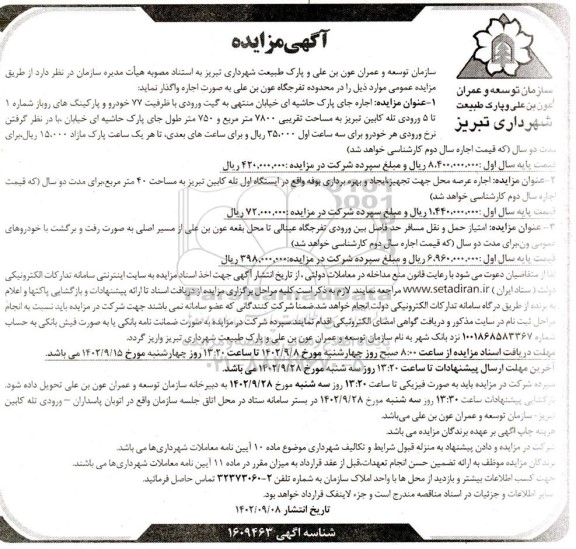 آگهی مزایده
سازمان توسعه و عمران
عون بن علی و پارک طبیعت
شهرداری تبریز
سازمان توسعه و عمران عون بن علی و پارک طبیعت شهرداری تبریز به استناد مصوبه هیأت مدیره سازمان در نظر دارد از طریق
مزایده عمومی موارد ذیل را در محدوده تفرجگاه عون بن علی به صورت اجاره واگذار نماید:
۱-عنوان مزایده: اجاره جای پارک حاشیه ای خیابان منتهی به گیت ورودی با ظرفیت ۷۷ خودرو و پارکینگ های روباز شماره ۱
تا ۵ ورودی تله کابین تبریز به مساحت تقریبی ۷۸۰۰ متر مربع و ۷۵۰ متر طول جای پارک حاشیه ای خیابان ،با در نظر گرفتن
نرخ ورودی هر خودرو برای سه ساعت اول ۳۵،۰۰۰ ریال و برای ساعت های بعدی، تا هر یک ساعت پارک مازاد ۱۵،۰۰۰ ریال،برای
مدت دو سال (که قیمت اجاره سال دوم کارشناسی خواهد شد)
قیمت پایه سال اول :۸،۴۰۰،۰۰۰،۰۰۰ ریال و مبلغ سپرده شرکت در مزایده :۴۲۰،۰۰۰،۰۰۰ ریال
۲-عنوان مزایده: اجاره عرصه محل جهت تجهیز،ایجاد و بهره برداری بوفه واقع در ایستگاه اول تله کابین تبریز به مساحت ۴۰ متر مربع،برای مدت دو سال (که قیمت
اجاره سال دوم کارشناسی خواهد شد)
قیمت پایه سال اول :۱،۴۴۰،۰۰۰،۰۰۰ ریال و مبلغ سپرده شرکت در مزایده :۷۲،۰۰۰،۰۰۰ ریال
۳-عنوان مزایده: امتیاز حمل و نقل مسافر حد فاصل بین ورودی تفرجگاه عینالی تا محل بقعه عون بن علی از مسیر اصلی به صورت رفت و برگشت با خودروهای
عمومی ون،برای مدت دو سال (که قیمت اجاره سال دوم کارشناسی خواهد شد)
قیمت پایه سال اول :۶،۹۶۰،۰۰۰،۰۰۰ ریال و مبلغ سپرده شرکت در مزایده :۳۹۸،۰۰۰،۰۰۰ ریال
لذا از متقاضیان دعوت می شود با رعایت قانون منع مداخله در معاملات دولتی ، از تاریخ انتشار آگهی جهت اخذ اسناد مزایده به سایت اینترنتی سامانه تدارکات الکترونیکی
دولت ( ستاد ایران ) www.setadiran.ir مراجعه نمایند. لازم به ذکر است کلیه مراحل برگزاری مزایده از دریافت اسناد تا ارائه پیشنهادات و بازگشایی پاکتها و اعلام
به برنده از طریق درگاه سامانه تدارکات الکترونیکی دولت انجام خواهد شد.ضمنا شرکت کنندگانی که عضو سامانه نمی باشند جهت شرکت در مزایده باید نسبت به انجام
مراحل ثبت نام در سایت مذکور و دریافت گواهی امضای الکترونیکی اقدام نمایند.سپرده شرکت در مزایده به صورت ضمانت نامه بانکی یا به صورت فیش بانکی به حساب
شماره ۱۰۰۱۸۶۸۵۸۳۳۶۷ نزد بانک شهر به نام سازمان توسعه و عمران عون بن علی و پارک طبیعت شهرداری تبریز واریز گردد.
مهلت دریافت اسناد مزایده از ساعت ۸:۰۰ صبح روز چهارشنبه مورخ ۱۴۰۲/۹/۸ تا ساعت ۱۳:۲۰ روز چهارشنبه مورخ ۱۴۰۲/۹/۱۵ می باشد.
آخرین مهلت ارسال پیشنهادات تا ساعت ۱۳:۲۰ روز سه شنبه مورخ ۱۴۰۲/۹/۲۸ می باشد.
سپرده شرکت در مزایده باید به صورت فیزیکی تا ساعت ۱۳:۲۰ روز سه شنبه مورخ ۱۴۰۲/۹/۲۸ به دبیرخانه سازمان توسعه و عمران عون بن علی تحویل داده شود.
بازگشایی پیشنهادات ساعت ۱۳:۳۰ روز سه شنبه مورخ ۱۴۰۲/۹/۲۸ در بستر سامانه ستاد در محل اتاق جلسه سازمان واقع در اتوبان پاسداران – ورودی تله کابین
تبریز- سازمان توسعه و عمران عون بن علی می‌باشد.
هزینه چاپ آگهی بر عهده برندگان مزایده می باشد.
شرکت در مزایده و دادن پیشنهاد به منزله قبول شرایط و تکالیف شهرداری موضوع ماده ۱۰ آیین نامه معاملات شهرداری‌ها می باشد.
برندگان مزایده موظف به ارائه تضمین حسن انجام تعهدات،قبل از عقد قرارداد به میزان مقرر در ماده ۱۱ آیین نامه معاملات شهرداری‌ها می باشند.
جهت کسب اطلاعات بیشتر و بازدید از محل ها با واحد املاک سازمان به شماره تلفن ۲-۳۲۳۷۳۰۶۰ تماس حاصل فرمائید.
سایر اطلاعات و جزئیات در اسناد مناقصه مندرج است و جزء لاینفک قرارداد خواهد بود.
تاریخ انتشار ۱۴۰۲/۰۹/۰۸
شناسه آگهی ۱۶۰۹۴۶۳